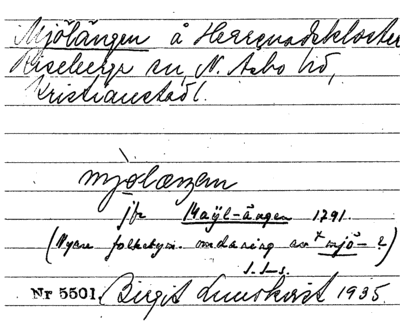 Mjölängen å Herrevadskloster
Riseberga sn, N. Åsbo hd,
Kristianstads l.
mjölæŋen
jfr Maÿl-ängen 1791.
(Nyare folketym. omdaning av *mjö- ?)
Nr 5501. Birgit Lundkvist 1935.